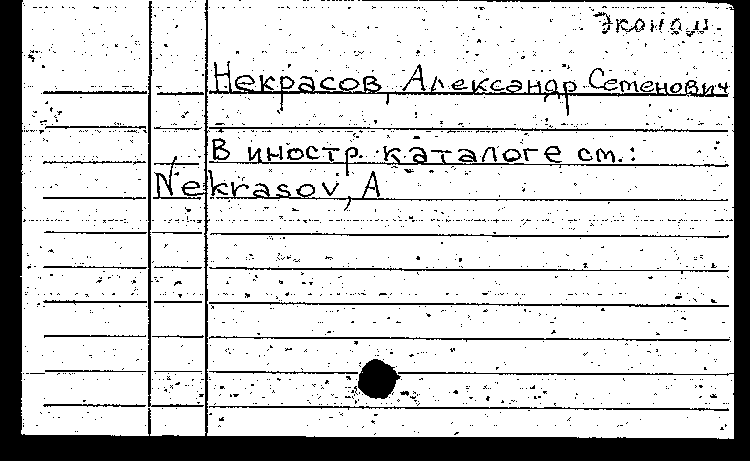 Эконом.
Некрасов, Александр Семенович
В иностр. каталоге см.:
Nekrasov, A